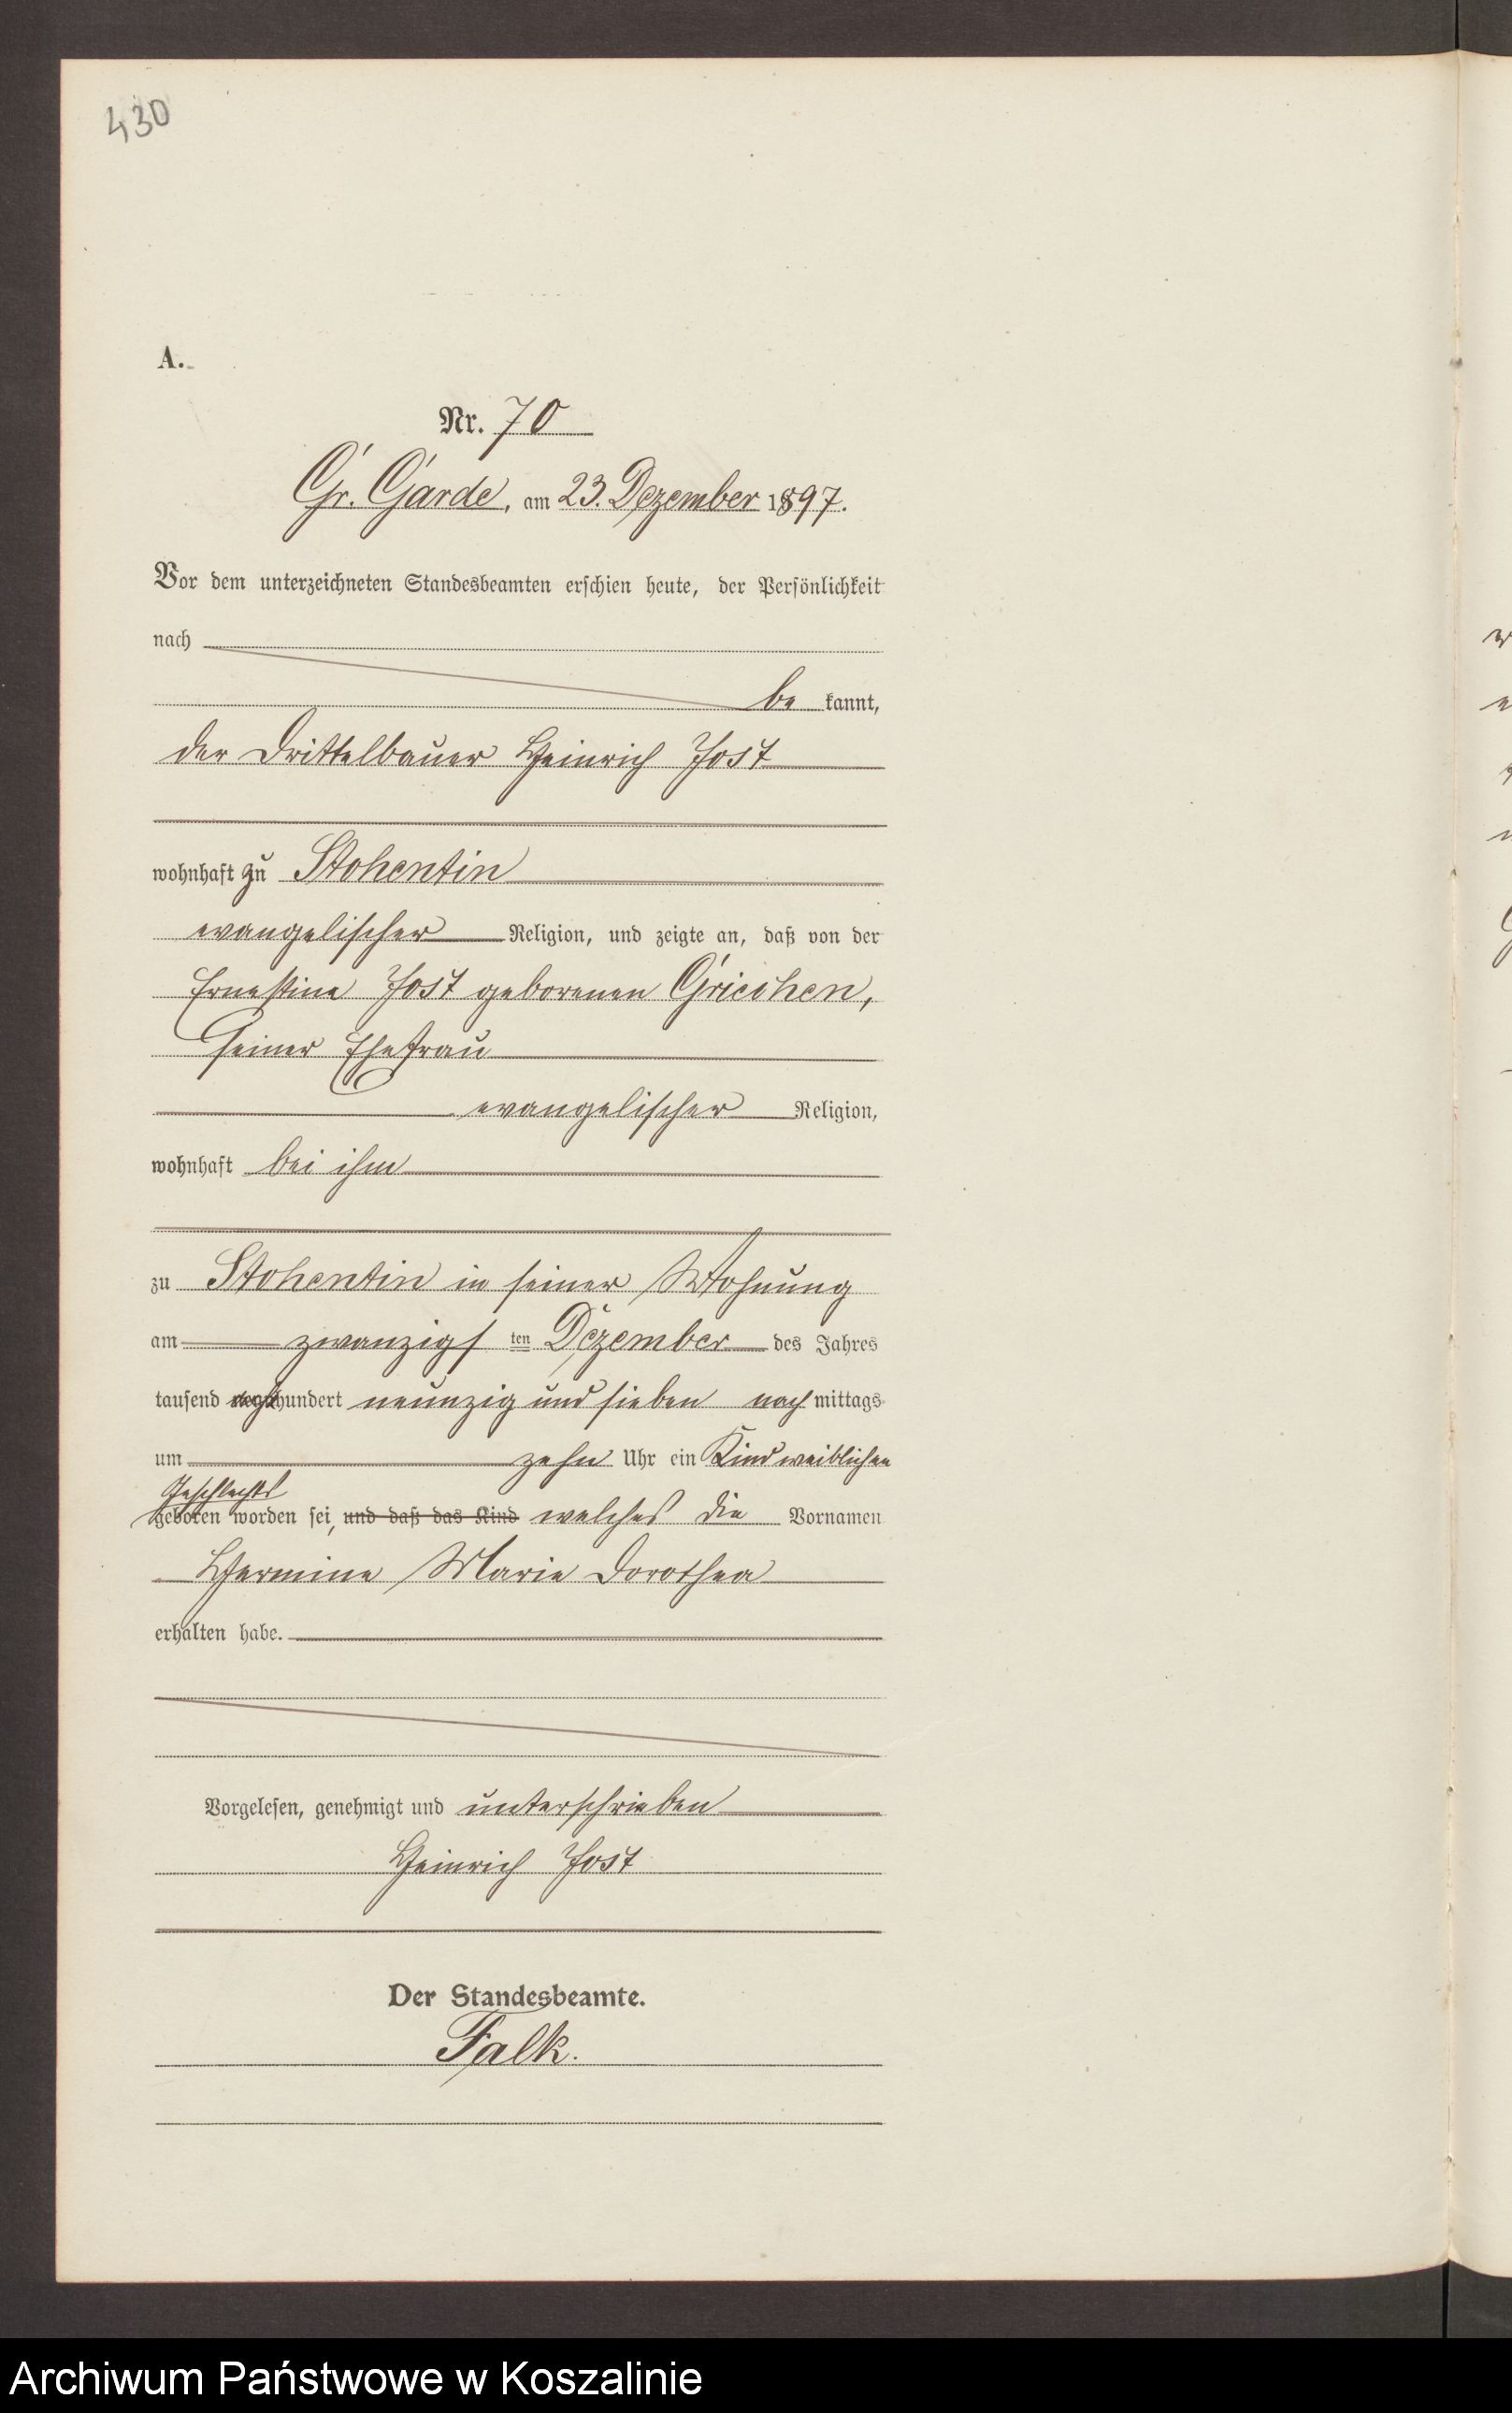 430
A.
Nr. 70
Gr. Garde, am 23. Dezember 1897.
Vor dem unterzeichneten Standesbeamten erschien heute, der Persönlichkeit
nach
be kannt,
der Drittelbauer Heinrich Jost
wohnhaft zu Stohentin
evangelischer Religion, und zeigte an, daß von der
Ernestine Jost geborenen
seiner Ehefrau
evangelischer Religion,
wohnhaft bei ihm
zu Stohentin in seiner Wohnung
am zwanzigs ten Dezember des Jahres
tausend acht hundert neunzig und sieben nach mittags
um zehn Uhr ein Kind weiblichen
Geschlechts
geboren worden sei, und daß das Kind welches die Vornamen
Hermine Marie Dorothea
erhalten habe.
Vorgelesen, genehmigt und unterschrieben
Heinrich Jost
Der Standesbeamte.
Falk.
Archiwum Państwowe w Koszalinie